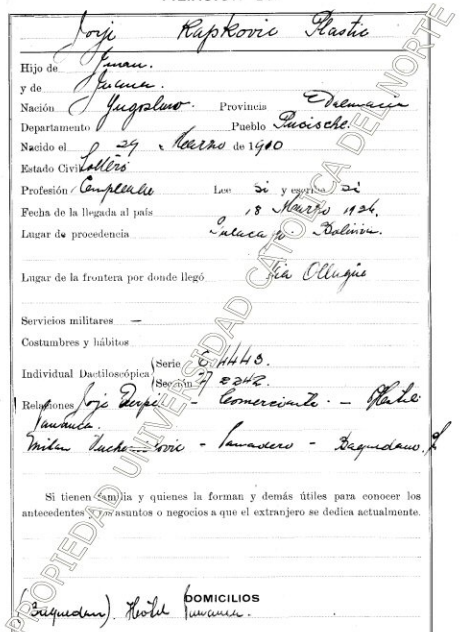 Jorje Rapkovic Plastic
Hijo de Juan
y de Juana
Nación Yugoslavo Provincia Dalmacia
Departamento Pueblo Pucische
Nacido el 29 Marzo de 1900
Estado Civil Soltero
Profesión Empleado Lee si y escribe si
Fecha de la llegada al país 18 Marzo 1924.
Lugar de procedencia Bolivia.
Lugar de la frontera por donde llegó Via Ollagüe
Servicios militares —
Costumbres y hábitos
Individual Dactiloscópica Serie E 4443
Sección 2242
Relaciones Jorje - Comerciante - Hotel
Milan - Panadero - Baquedano
Si tienen familia y quienes la forman y demás útiles para conocer los
antecedentes y los asuntos o negocios a que el extranjero se dedica actualmente.
DOMICILIOS
(Baquedano). Hotel
PROPIEDAD UNIVERSIDAD CATOLICA DEL NORTE